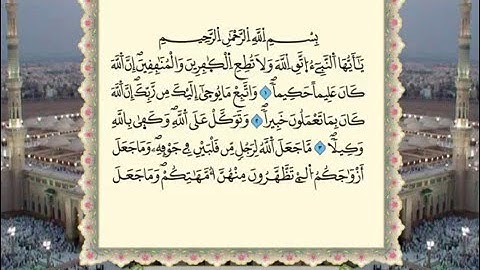 بِسْمِ اللَّهِ الرَّحْمَٰنِ الرَّحِيمِ
يَٰأَيُّهَا النَّبِيءُ اتَّقِ اللَّهَ وَلَا تُطِعِ الْكَٰفِرِينَ وَالْمُنَٰفِقِينَ إِنَّ اللَّهَ
كَانَ عَلِيماً حَكِيماً ١ وَاتَّبِعْ مَا يُوحَىٰ إِلَيْكَ مِن رَّبِّكَ إِنَّ اللَّهَ
كَانَ بِمَا تَعْمَلُونَ خَبِيراً ٢ وَتَوَكَّلْ عَلَى اللَّهِ وَكَفَىٰ بِاللَّهِ
وَكِيلاً ٣ مَّا جَعَلَ اللَّهُ لِرَجُلٍ مِّن قَلْبَيْنِ فِي جَوْفِهِ وَمَا جَعَلَ
أَزْوَاجَكُمُ الَٰٓـِٔ تَظَّهَّرُونَ مِنْهُنَّ أُمَّهَٰتِكُمْ وَمَا جَعَلَ